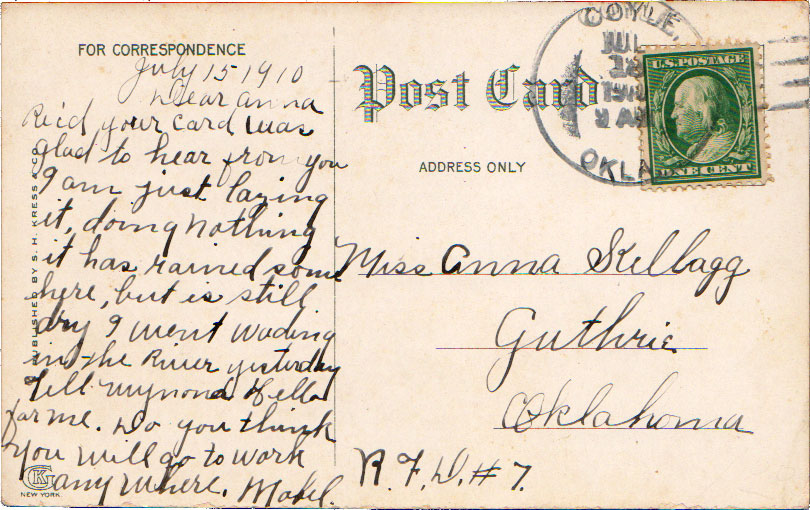 FOR CORRESPONDENCE
July 15 1910
Dear Anna
Rec'd your card was
glad to hear from you
I am just lazing
it, doing nothing
it has rained some
here, but is still
dry I went wading
in the River yesterday
Tell Hello
for me. Do you think
you will go to work
any where. Mabel.
PUBLISHED BY S. H. KRESS & CO.
NEW YORK
Post Card
ADDRESS ONLY
COYLE,
JUL
191
OKLA
U.S. POSTAGE
ONE CENT
Miss Anna Kellagg
Guthrie
Oklahoma
R. F. D. # 7.